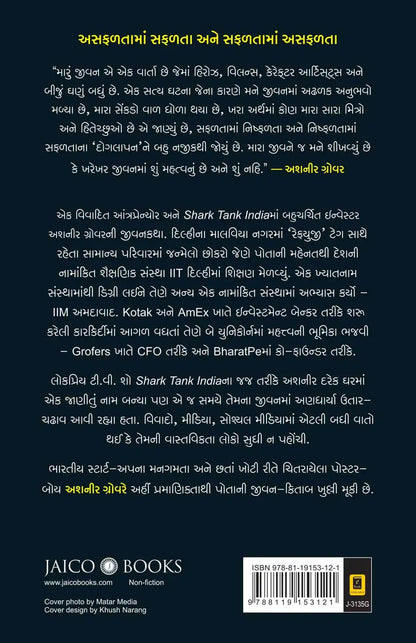 અસફળતામાં સફળતા અને સફળતામાં અસફળતા
“મારું જીવન એ એક વાર્તા છે જેમાં હિરોઝ, વિલન્સ, કેરેક્ટર આર્ટિસ્ટ્સ અને
બીજું ઘણું બધું છે. એક સત્ય ઘટના જેના કારણે મને જીવનમાં અઢળક અનુભવો
મળ્યા છે, મારા સેંકડો વાળ ધોળા થયા છે, ખરા અર્થમાં કોણ મારા સારા મિત્રો
અને હિતેચ્છુઓ છે એ જાણ્યું છે, સફળતામાં નિષ્ફળતા અને નિષ્ફળતામાં
સફળતાના ‘દોગલાપન’ને બહુ નજીકથી જોયું છે. મારા જીવને જ મને શીખવ્યું છે
કે ખરેખર જીવનમાં શું મહત્ત્વનું છે અને શું નહિ.” — અશનીર ગ્રોવર
એક વિવાદિત આંત્રપ્રેન્યોર અને Shark Tank Indiaમાં બહુચર્ચિત ઇન્વેસ્ટર
અશનીર ગ્રોવરની જીવનકથા. દિલ્હીના માલવિયા નગરમાં ‘રેફ્યુજી’ ટેગ સાથે
રહેતા સામાન્ય પરિવારમાં જન્મેલો છોકરો જેણે પોતાની મહેનતથી દેશની
નામાંકિત શૈક્ષણિક સંસ્થા IIT દિલ્હીમાં શિક્ષણ મેળવ્યું. એક ખ્યાતનામ
સંસ્થામાંથી ડિગ્રી લઈને તેણે અન્ય એક નામાંકિત સંસ્થામાં અભ્યાસ કર્યો –
IIM અમદાવાદ. Kotak અને AmEx ખાતે ઇન્વેસ્ટમેન્ટ બેન્કર તરીકે શરૂ
કરેલી કારકિર્દીમાં આગળ વધતાં તેણે બે યુનિકોર્નમાં મહત્ત્વની ભૂમિકા ભજવી
– Grofers ખાતે CFO તરીકે અને BharatPeમાં કો–ફાઉન્ડર તરીકે.
લોકપ્રિય ટી.વી. શો Shark Tank Indiaના જજ તરીકે અશનીર દરેક ઘરમાં
એક જાણીતું નામ બન્યા પણ એ જ સમયે તેમના જીવનમાં અણધાર્યા ઉતાર–
ચઢાવ આવી રહ્યા હતા. વિવાદો, મીડિયા, સોશ્યલ મીડિયામાં એટલી બધી વાતો
થઈ કે તેમની વાસ્તવિકતા લોકો સુધી ન પહોંચી.
ભારતીય સ્ટાર્ટ–અપના મનગમતા અને છતાં ખોટી રીતે ચિતરાયેલા પોસ્ટર–
બોય અશનીર ગ્રોવરે અહીં પ્રમાણિકતાથી પોતાની જીવન–કિતાબ ખુલ્લી મૂકી છે.
JAICO BOOKS
www.jaicobooks.com Non-fiction
Cover photo by Matar Media
Cover design by Khush Narang
ISBN 978-81-19153-12-1
9 788119 153121
J-3135G